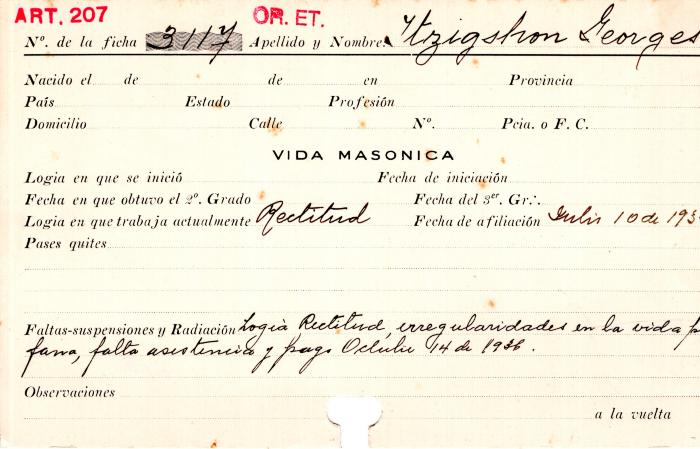 ART. 207 OR. ET.
Nº. de la ficha 3117 Apellido y Nombres Itzigshon Georges
Nacido el de de en Provincia
País Estado Profesión
Domicilio Calle Nº. Pcia. o F. C.
VIDA MASONICA
Logia en que se inició Fecha de iniciación
Fecha en que obtuvo el 2º. Grado Fecha del 3er. Gr∴
Logia en que trabaja actualmente Rectitud Fecha de afiliación Julio 10 de 193
Pases quites
Faltas-suspensiones y Radiación Logia Rectitud, irregularidades en la vida p
fana, falta asistencia y pago Octubre 14 de 1936.
Observaciones
a la vuelta